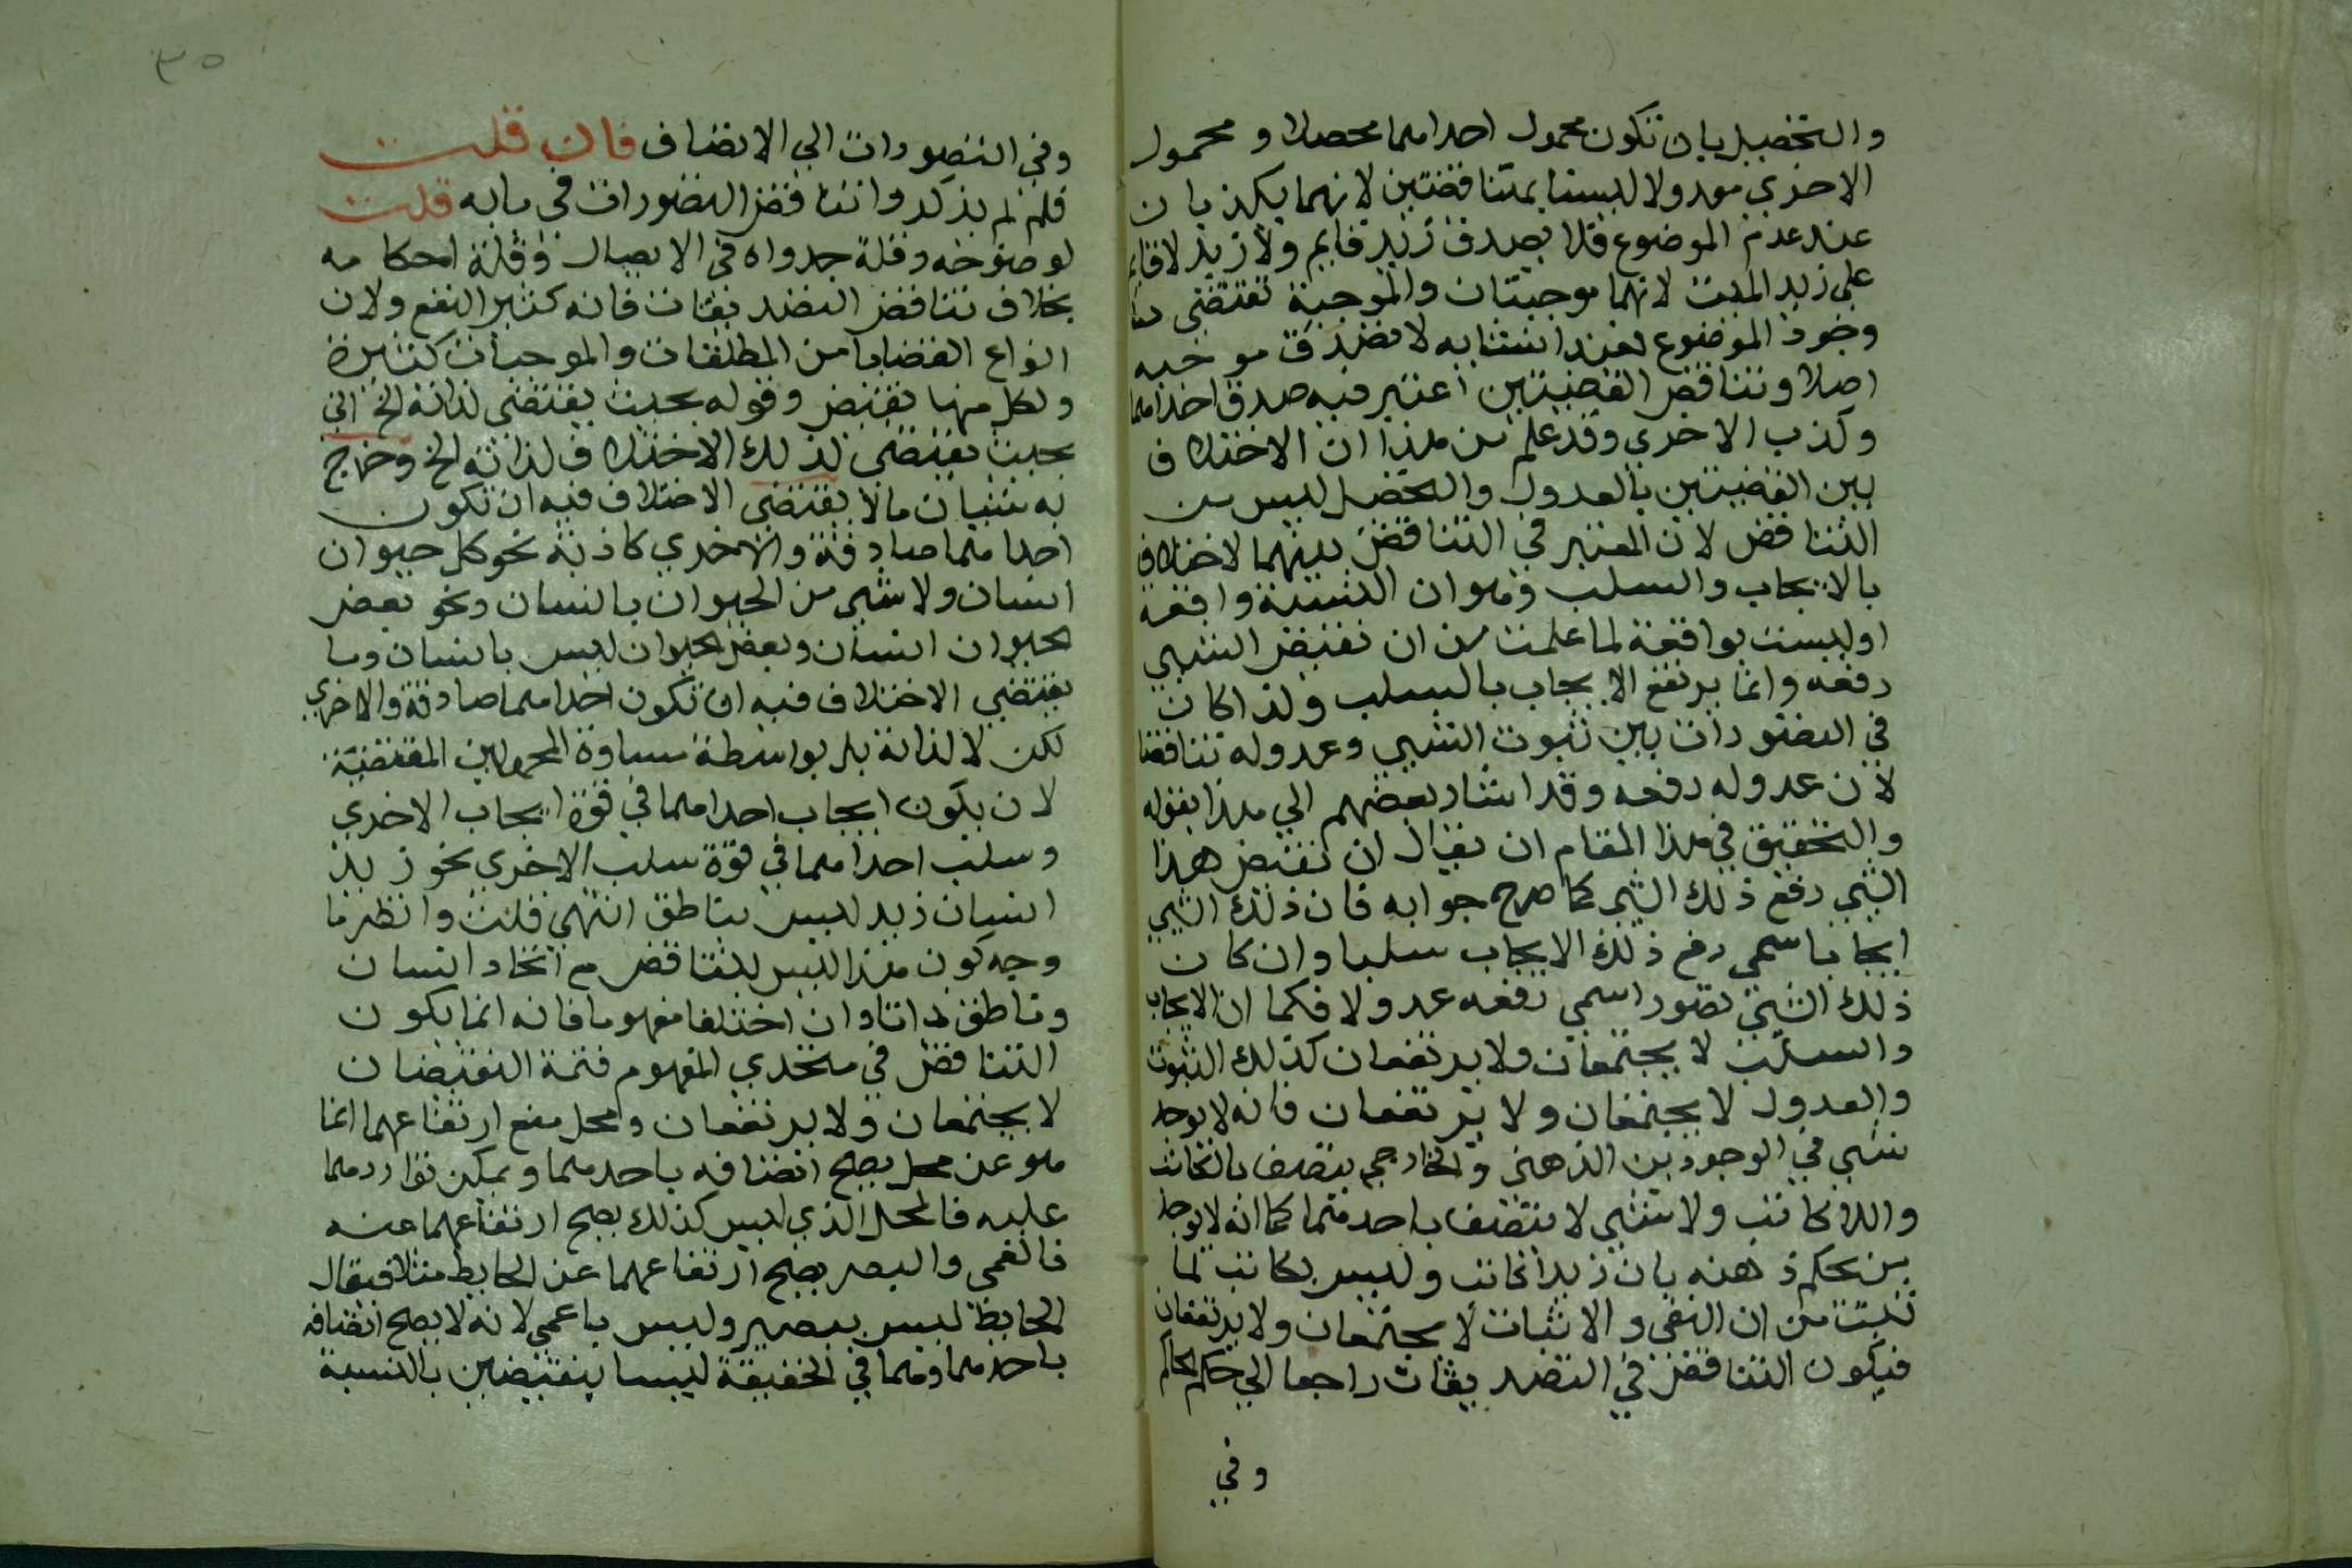 والتحصيل بان تكون محمول احداهما محصلا و محمول
الاخري معدولا ليستا بمتناقضتين لانهما يكذبان
عند عدم الموضوع فلا يصدق زيد قايم ولا زيد لا قايم
علي زيد الميت لانهما موجبتان والموجبة تقتضي
وجود الموضوع فعند انتفايه لا تصدق موجبه
اصلا وتناقض القضيتين اعتبر فيه صدق احداهما
وكذب الاخري وقد علم من هذا ان الاختلاف
بين القضيتين بالعدول والتحصيل ليس من
التناقض لان المعتبر في التناقض بينهما لاختلاف
بالايجاب والسلب وهو ان النسبة واقعة
اوليست بواقعة لما علمت من ان نقيض الشيي
رفعه وانما يرتفع الايجاب بالسلب ولذا كان
في التصورات بين ثبوت الشيي وعدوله تناقضا
لان عدوله رفعه وقد اشار بعضهم الي هذا بقوله
والتحقيق في هذا المقام ان يقال ان نقيض هذا
الشيي رفع ذلك الشيي كما صرح جوابه فان ذلك الشيي
ايجابا سمي رفع ذلك الايجاب سلبا وان كان
ذلك الشيي تصورا سمي رفعه عدولا فكما ان الايجاب
والسلب لا يجتمعان ولا يرتفعان كذلك الثبوت
والعدول لا يجتمعان ولا يرتفعان فانه لا يوجد
شيي في الوجودين الذهني والخارجي يتصف بالكاتب
واللاكاتب ولا شيي لا متصف باحدهما كما انه لا يوجد
من يحكم ذهنه بان زيدا كاتب وليس بكاتب لما
ثبت من ان النفي والاثبات لا يجتمعان ولا يرتفعان
فيكون التناقض في التصديقات راجعا الي حكم الحاكم
وفي
٣٥
وفي التصورات الي الاتصاف فان قلت
فلم لم يذكروا تناقض التصورات في بابه قلت
لوضوحه وقلة جدواه في الايصال وقلة احكامه
بخلاف تناقض التصديقات فانه كثير النفع ولان
انواع القضايا من المطلقات والموجبات كثيرة
ولكل منها نقيض وقوله بحيث يقتضي لذاته الخ اي
بحيث يقتضي ذلك الاختلاف لذاته الخ وخرج
به شيان ما لا يقتضي الاختلاف فيه ان تكون
احداهما صادقة والاخري كاذبة نحو كل حيوان
انسان ولا شيي من الحيوان بانسان ونحو بعض
الحيوان انسان وبعض الحيوان ليس بانسان وما
يقتضي الاختلاف فيه ان تكون احداهما صادقة والاخري
لكن لا لذاته بل بواسطة مساوة المحمولين المقتضية
لان يكون ايجاب احداهما في قوة ايجاب الاخري
وسلب احداهما في قوة سلب الاخري نحو زيد
انسان زيد ليس بناطق انتهي قلت وانظر ما
وجه كون هذا ليس بتناقض مع اتحاد انسان
وناطق ذاتا وان اختلفا مفهوما فانه انما يكون
التناقض في متحدي المفهوم فتمة النقيضان
لا يجتمعان ولا يرتفعان ومحل منع ارتفاعهما انما
هو عن محل يصح اتصافه باحدهما ويمكن تواردهما
عليه فالمحل الذي ليس كذلك يصح ارتفاعهما عنه
فالعمي والبصر يصح ارتفاعهما عن الحايط مثلا فيقال
الحايط ليس ببصير وليس باعمي لانه لا يصح اتصافه
باحدهما وهما في الحقيقة ليسا بنقيضين بالنسبة